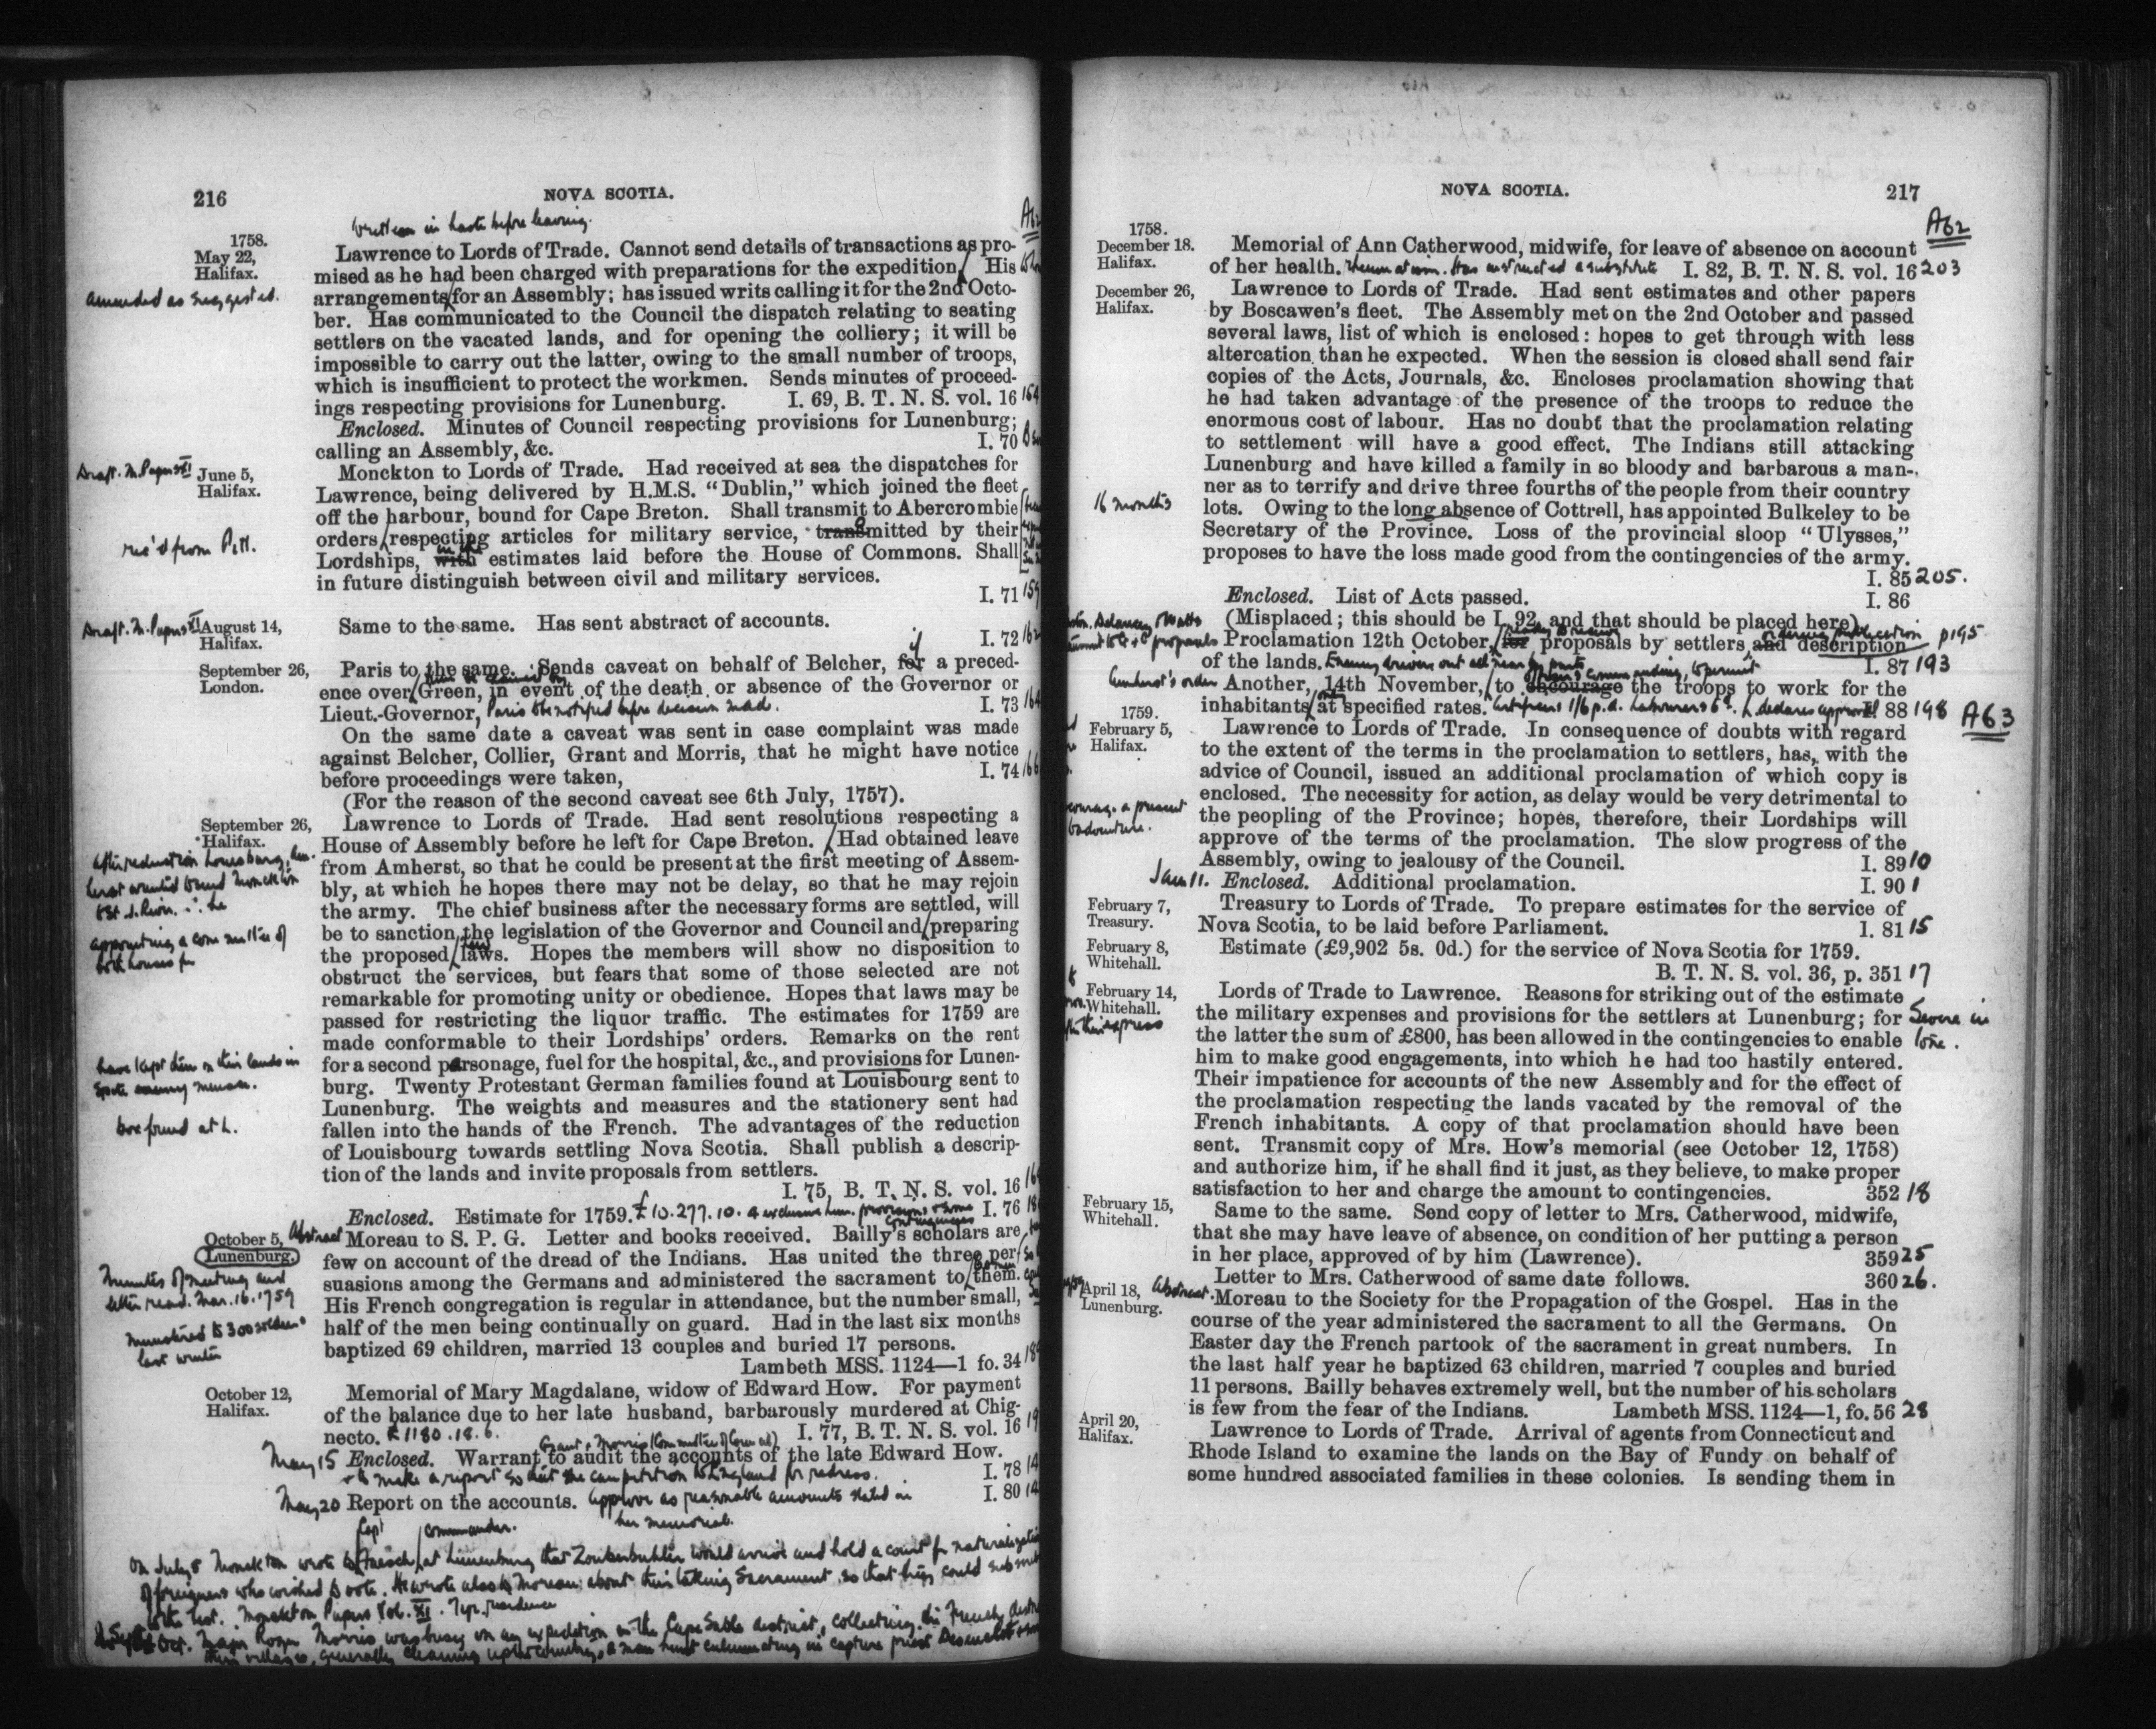 216 NOVA SCOTIA.
written in haste before leaving.
A62
1758.
May 22,
Halifax.
amended as suggested.
Lawrence to Lords of Trade. Cannot send details of transactions as pro-
mised as he had been charged with preparations for the expedition. His
arrangements for an Assembly; has issued writs calling it for the 2nd Octo-
ber. Has communicated to the Council the dispatch relating to seating
settlers on the vacated lands, and for opening the colliery; it will be
impossible to carry out the latter, owing to the small number of troops,
which is insufficient to protect the workmen. Sends minutes of proceed-
ings respecting provisions for Lunenburg. I. 69, B. T. N. S. vol. 16
Enclosed. Minutes of Council respecting provisions for Lunenburg;
calling an Assembly, &c. I. 70
June 5,
Halifax.
rec'd from Pitt.
Monckton to Lords of Trade. Had received at sea the dispatches for
Lawrence, being delivered by H.M.S. "Dublin," which joined the fleet
off the harbour, bound for Cape Breton. Shall transmit to Abercrombie
orders respecting articles for military service, transmitted by their
Lordships, with in the estimates laid before the House of Commons. Shall
in future distinguish between civil and military services.
I. 71 159
August 14,
Halifax.
Same to the same. Has sent abstract of accounts.
I. 72 162
September 26,
London.
Paris to the same. Sends caveat on behalf of Belcher, for if a preced-
ence over Green, in event of the death or absence of the Governor or
Lieut.-Governor, Paris to be notified before decision made. I. 73 164
On the same date a caveat was sent in case complaint was made
against Belcher, Collier, Grant and Morris, that he might have notice
before proceedings were taken, I. 74 166
(For the reason of the second caveat see 6th July, 1757).
September 26,
Halifax.
Lawrence to Lords of Trade. Had sent resolutions respecting a
House of Assembly before he left for Cape Breton. Had obtained leave
from Amherst, so that he could be present at the first meeting of Assem-
bly, at which he hopes there may not be delay, so that he may rejoin
the army. The chief business after the necessary forms are settled, will
be to sanction the legislation of the Governor and Council and preparing
the proposed new laws. Hopes the members will show no disposition to
obstruct the services, but fears that some of those selected are not
remarkable for promoting unity or obedience. Hopes that laws may be
passed for restricting the liquor traffic. The estimates for 1759 are
made conformable to their Lordships' orders. Remarks on the rent
for a second parsonage, fuel for the hospital, &c., and provisions for Lunen-
burg. Twenty Protestant German families found at Louisbourg sent to
Lunenburg. The weights and measures and the stationery sent had
fallen into the hands of the French. The advantages of the reduction
of Louisbourg towards settling Nova Scotia. Shall publish a descrip-
tion of the lands and invite proposals from settlers.
appointing a committee of
both houses for
have kept them on their lands in
spite enemy menace.
box found at L.
I. 75, B. T. N. S. vol. 16
Enclosed. Estimate for 1759. £10.277.10.4 exclusive Lun. provisions & some contingencies I. 76
October 5,
Lunenburg.
Abstract
Minutes of meeting and
letter read. Mar. 16. 1759
ministered to 300 soldiers
last winter
Moreau to S. P. G. Letter and books received. Bailly's scholars are
few on account of the dread of the Indians. Has united the three per-
suasions among the Germans and administered the sacrament to them.
His French congregation is regular in attendance, but the number small,
half of the men being continually on guard. Had in the last six months
baptized 69 children, married 13 couples and buried 17 persons.
Lambeth MSS. 1124—1 fo. 34
October 12,
Halifax.
Memorial of Mary Magdalane, widow of Edward How. For payment
of the balance due to her late husband, barbarously murdered at Chig-
necto. £1180.18.6. I. 77, B. T. N. S. vol. 16
Grant & Morris (Committee of Council)
May 15 Enclosed. Warrant to audit the accounts of the late Edward How.
& to make a report so that she can petition to England for redress. I. 78
May 20 Report on the accounts. approve as reasonable amounts stated in I. 80
her memorial.
Capt commander.
On July 8 Monckton wrote to Faesch at Lunenburg that Zouberbuhler would arrive and hold a court for naturalization
of foreigners who wished to vote. He wrote also to Moreau about their taking Sacrament so that they could submit
to the test. Monckton Papers Vol. XI.
Oct. Major Roger Morris was busy on an expedition in the Cape Sable district, collecting the French,
their villages, generally cleaning up the country, a man hunt culminating in capture priest
NOVA SCOTIA. 217
A62
1758.
December 18.
Halifax.
Memorial of Ann Catherwood, midwife, for leave of absence on account
of her health. rheumatism. Has instructed a substitute I. 82, B. T. N. S. vol. 16 203
December 26,
Halifax.
16 months
Lawrence to Lords of Trade. Had sent estimates and other papers
by Boscawen's fleet. The Assembly met on the 2nd October and passed
several laws, list of which is enclosed: hopes to get through with less
altercation than he expected. When the session is closed shall send fair
copies of the Acts, Journals, &c. Encloses proclamation showing that
he had taken advantage of the presence of the troops to reduce the
enormous cost of labour. Has no doubt that the proclamation relating
to settlement will have a good effect. The Indians still attacking
Lunenburg and have killed a family in so bloody and barbarous a man-
ner as to terrify and drive three fourths of the people from their country
lots. Owing to the long absence of Cottrell, has appointed Bulkeley to be
Secretary of the Province. Loss of the provincial sloop "Ulysses,"
proposes to have the loss made good from the contingencies of the army.
I. 85 205.
Enclosed. List of Acts passed. I. 86
(Misplaced; this should be I. 92, and that should be placed here)
Proclamation 12th October, for ready to receive proposals by settlers and ordering publication description p195
of the lands. I. 87 193
Amherst's order Another, 14th November, to encourage the troops to work for the
inhabitants at specified rates. Artificers 1/6 p.d. Labourers 6d. L. declares approval I. 88 198
A63
1759.
February 5,
Halifax.
Lawrence to Lords of Trade. In consequence of doubts with regard
to the extent of the terms in the proclamation to settlers, has, with the
advice of Council, issued an additional proclamation of which copy is
enclosed. The necessity for action, as delay would be very detrimental to
the peopling of the Province; hopes, therefore, their Lordships will
approve of the terms of the proclamation. The slow progress of the
Assembly, owing to jealousy of the Council. I. 89 10
Jan 11. Enclosed. Additional proclamation. I. 90 1
February 7,
Treasury.
Treasury to Lords of Trade. To prepare estimates for the service of
Nova Scotia, to be laid before Parliament. I. 81 15
February 8,
Whitehall.
Estimate (£9,902 5s. 0d.) for the service of Nova Scotia for 1759.
B. T. N. S. vol. 36, p. 351 17
February 14,
Whitehall.
Lords of Trade to Lawrence. Reasons for striking out of the estimate
the military expenses and provisions for the settlers at Lunenburg; for Severe in
the latter the sum of £800, has been allowed in the contingencies to enable tone.
him to make good engagements, into which he had too hastily entered.
Their impatience for accounts of the new Assembly and for the effect of
the proclamation respecting the lands vacated by the removal of the
French inhabitants. A copy of that proclamation should have been
sent. Transmit copy of Mrs. How's memorial (see October 12, 1758)
and authorize him, if he shall find it just, as they believe, to make proper
satisfaction to her and charge the amount to contingencies. 352 18
February 15,
Whitehall.
Same to the same. Send copy of letter to Mrs. Catherwood, midwife,
that she may have leave of absence, on condition of her putting a person
in her place, approved of by him (Lawrence). 359 25
Letter to Mrs. Catherwood of same date follows. 360 26.
April 18,
Lunenburg.
Abstract. Moreau to the Society for the Propagation of the Gospel. Has in the
course of the year administered the sacrament to all the Germans. On
Easter day the French partook of the sacrament in great numbers. In
the last half year he baptized 63 children, married 7 couples and buried
11 persons. Bailly behaves extremely well, but the number of his scholars
is few from the fear of the Indians. Lambeth MSS. 1124—1, fo. 56 28
April 20,
Halifax.
Lawrence to Lords of Trade. Arrival of agents from Connecticut and
Rhode Island to examine the lands on the Bay of Fundy on behalf of
some hundred associated families in these colonies. Is sending them in